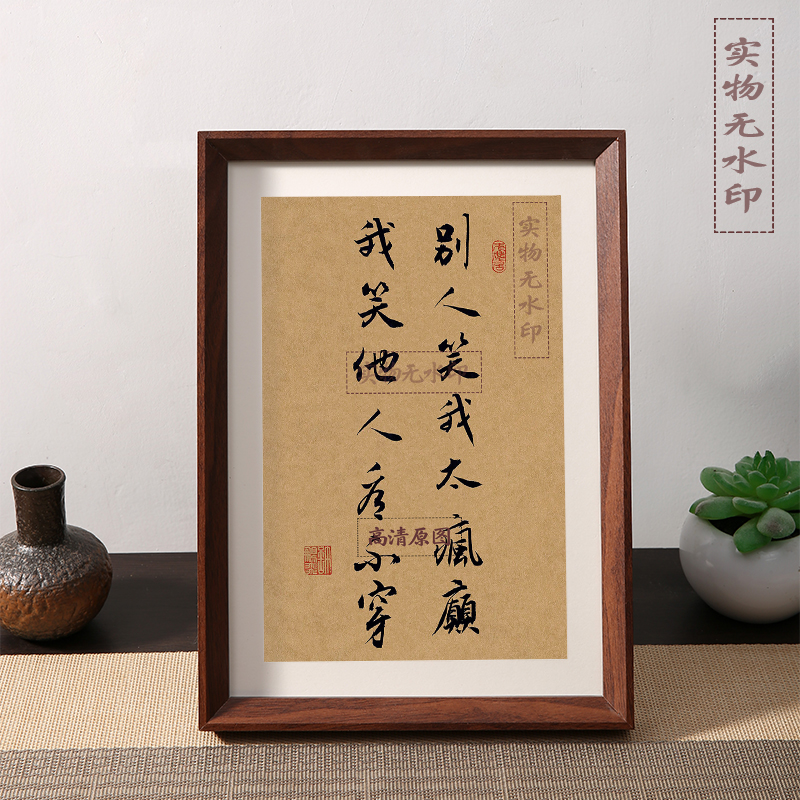 别人笑我太瘋癲
我笑他人看不穿
实物无水印
实物无水印
实物无水印
高清原图